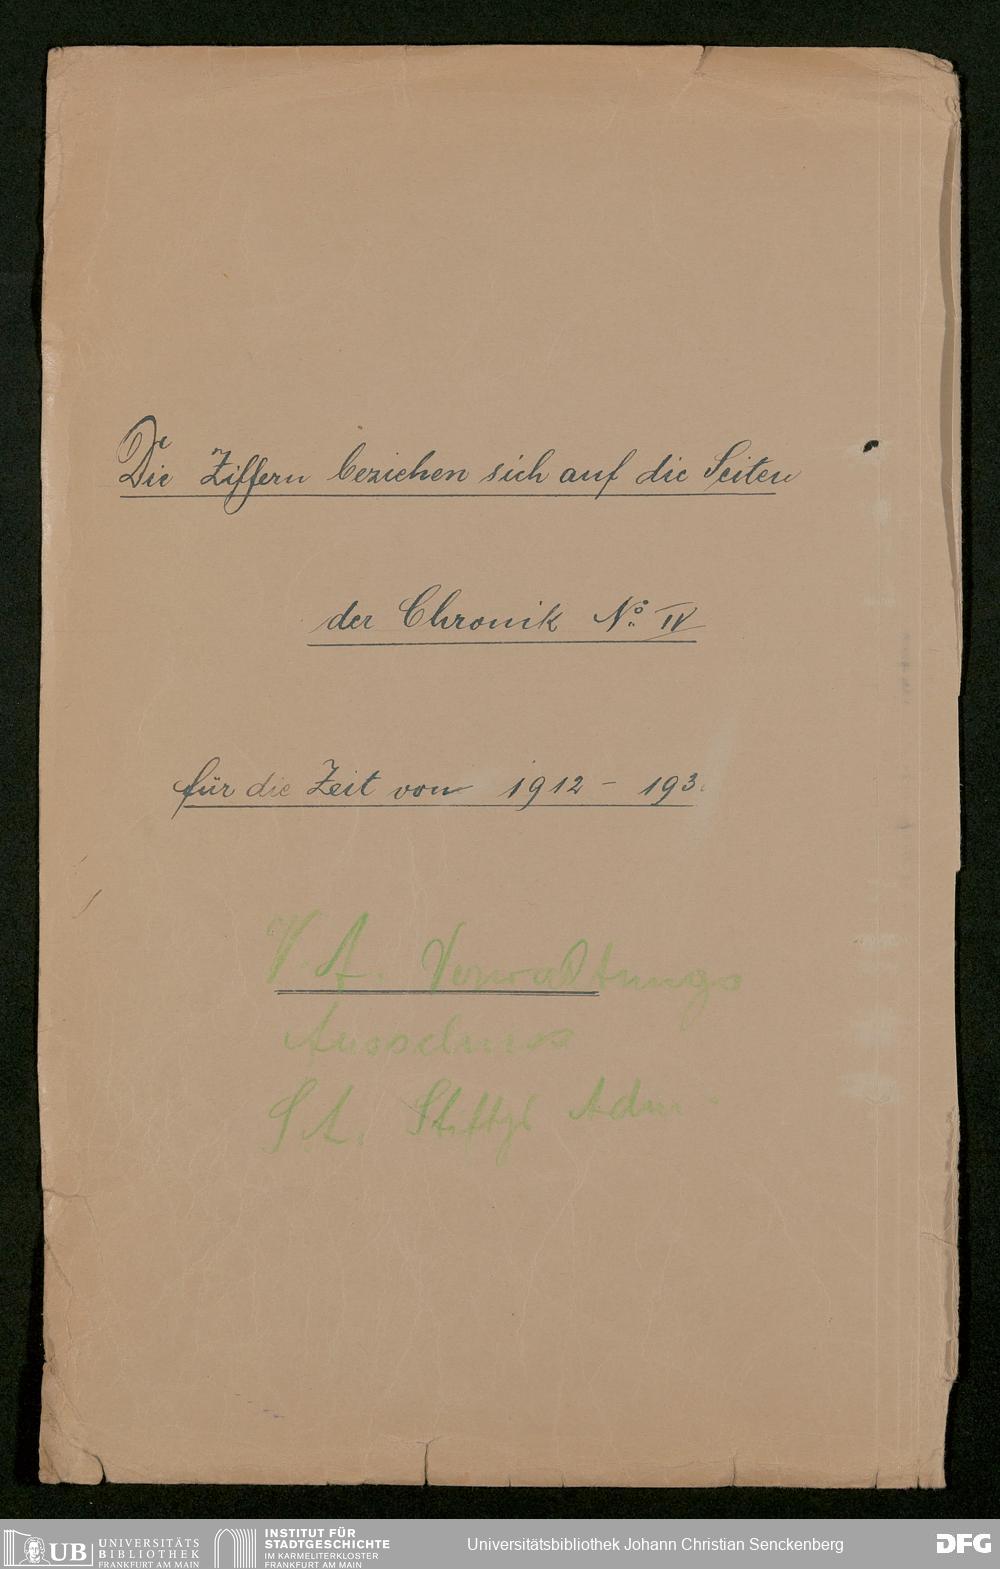 Die Ziffern beziehen sich auf die Seiten
der Chronik No. IV
für die Zeit vom 1912 - 193
V. A. Verwaltungs
Ausschuss
S A. Stiftgs Adm.
UB UNIVERSITÄTS
BIBLIOTHEK
FRANKFURT AM MAIN
INSTITUT FÜR
STADTGESCHICHTE
IM KARMELITERKLOSTER
FRANKFURT AM MAIN
Universitätsbibliothek Johann Christian Senckenberg
DFG